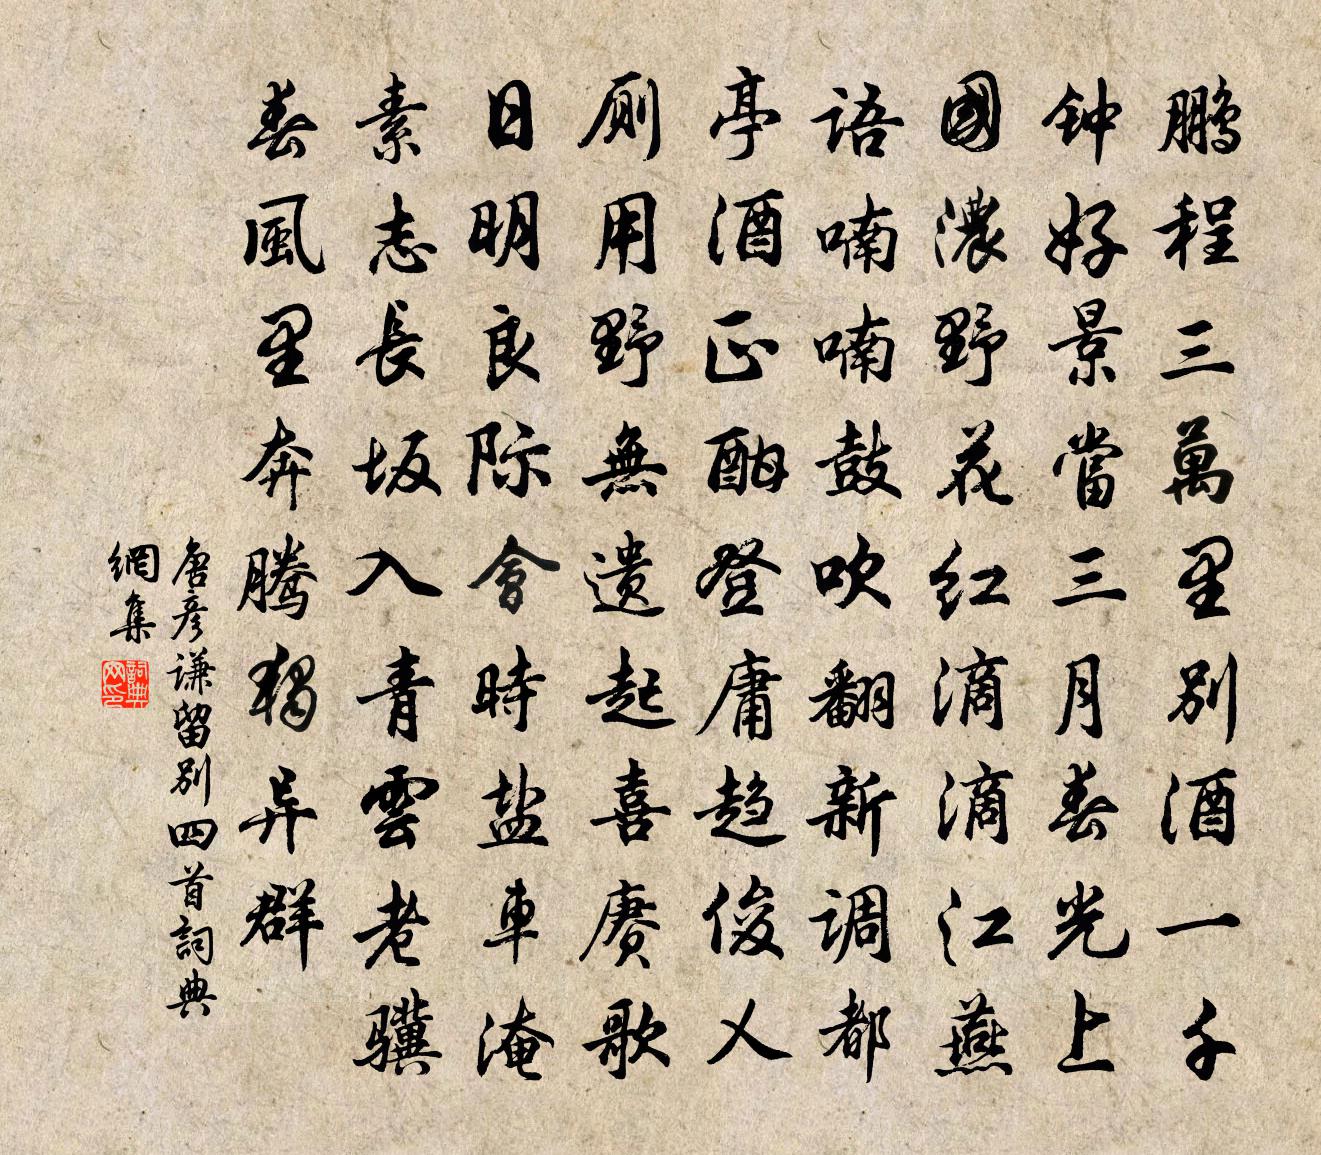 鹏程三萬里别酒一千
钟好景當三月春光上
國濃野花红滴滴江燕
語喃喃鼓吹翻新调都
亭酒正酣登庸趋俊人
厠用野無遗起喜赓歌
日明良际會時盐車淹
素志長坂入青雲老骥
春風里奔腾独异群
唐彦谦留别四首詞典
網集